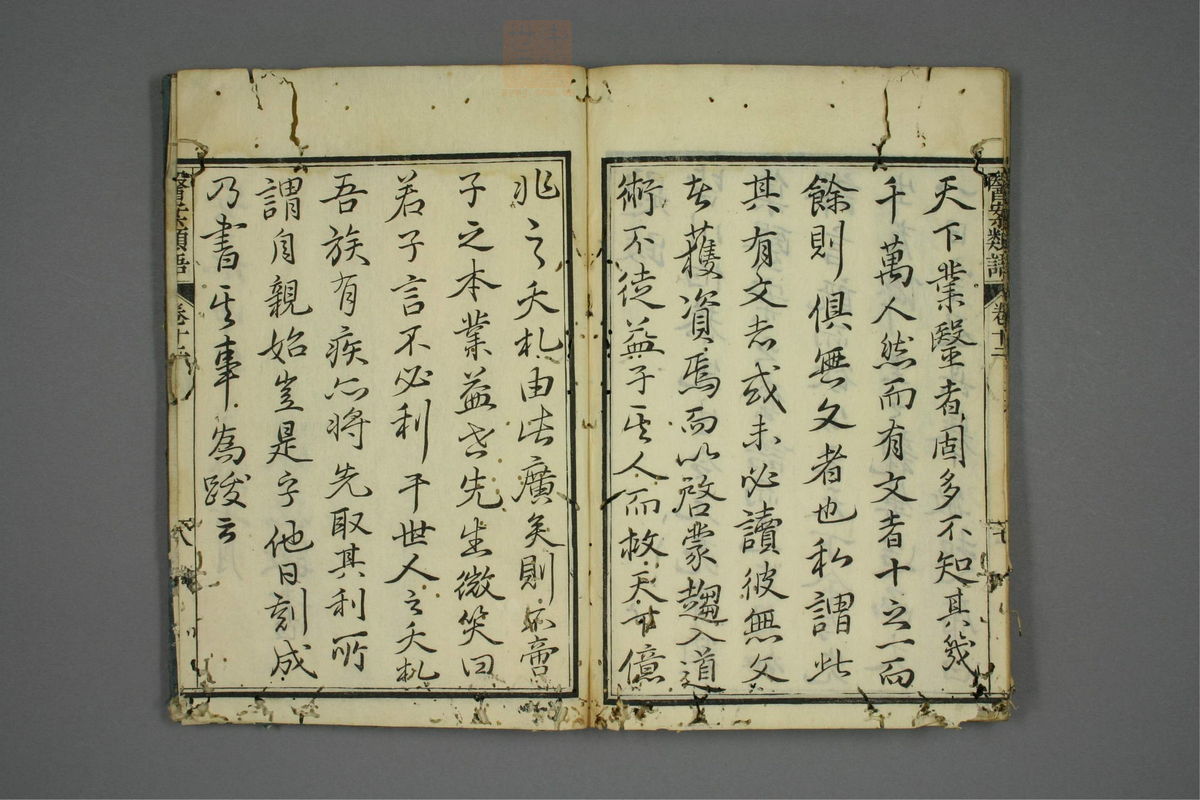 醫案類語 卷十二 七
天下業醫者固多不知其幾
千萬人然而有文者十之一而
餘則俱無文者也私謂此
其有文者或未必讀彼無文
者獲資焉而以啓蒙趨入道
術不徒益子其人而救天下億
兆之夭札由此廣矣則不啻
子之本業益世先生微笑曰
若子言不必利干世人之夭札
吾族有疾亦將先取其利所
謂自親始豈是乎他日刻成
乃書其事為跋云
醫案類語 卷十二 八